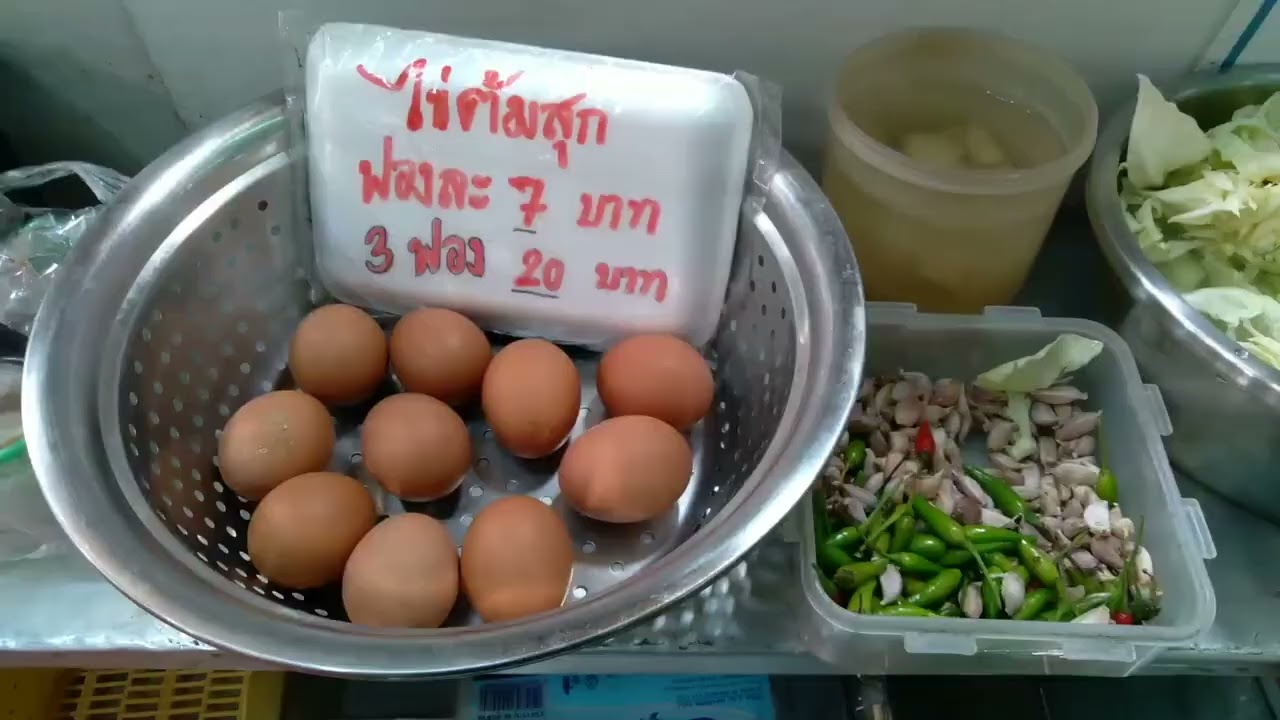 ไข่ต้มสุก
ฟองละ 7 บาท
3 ฟอง 20 บาท